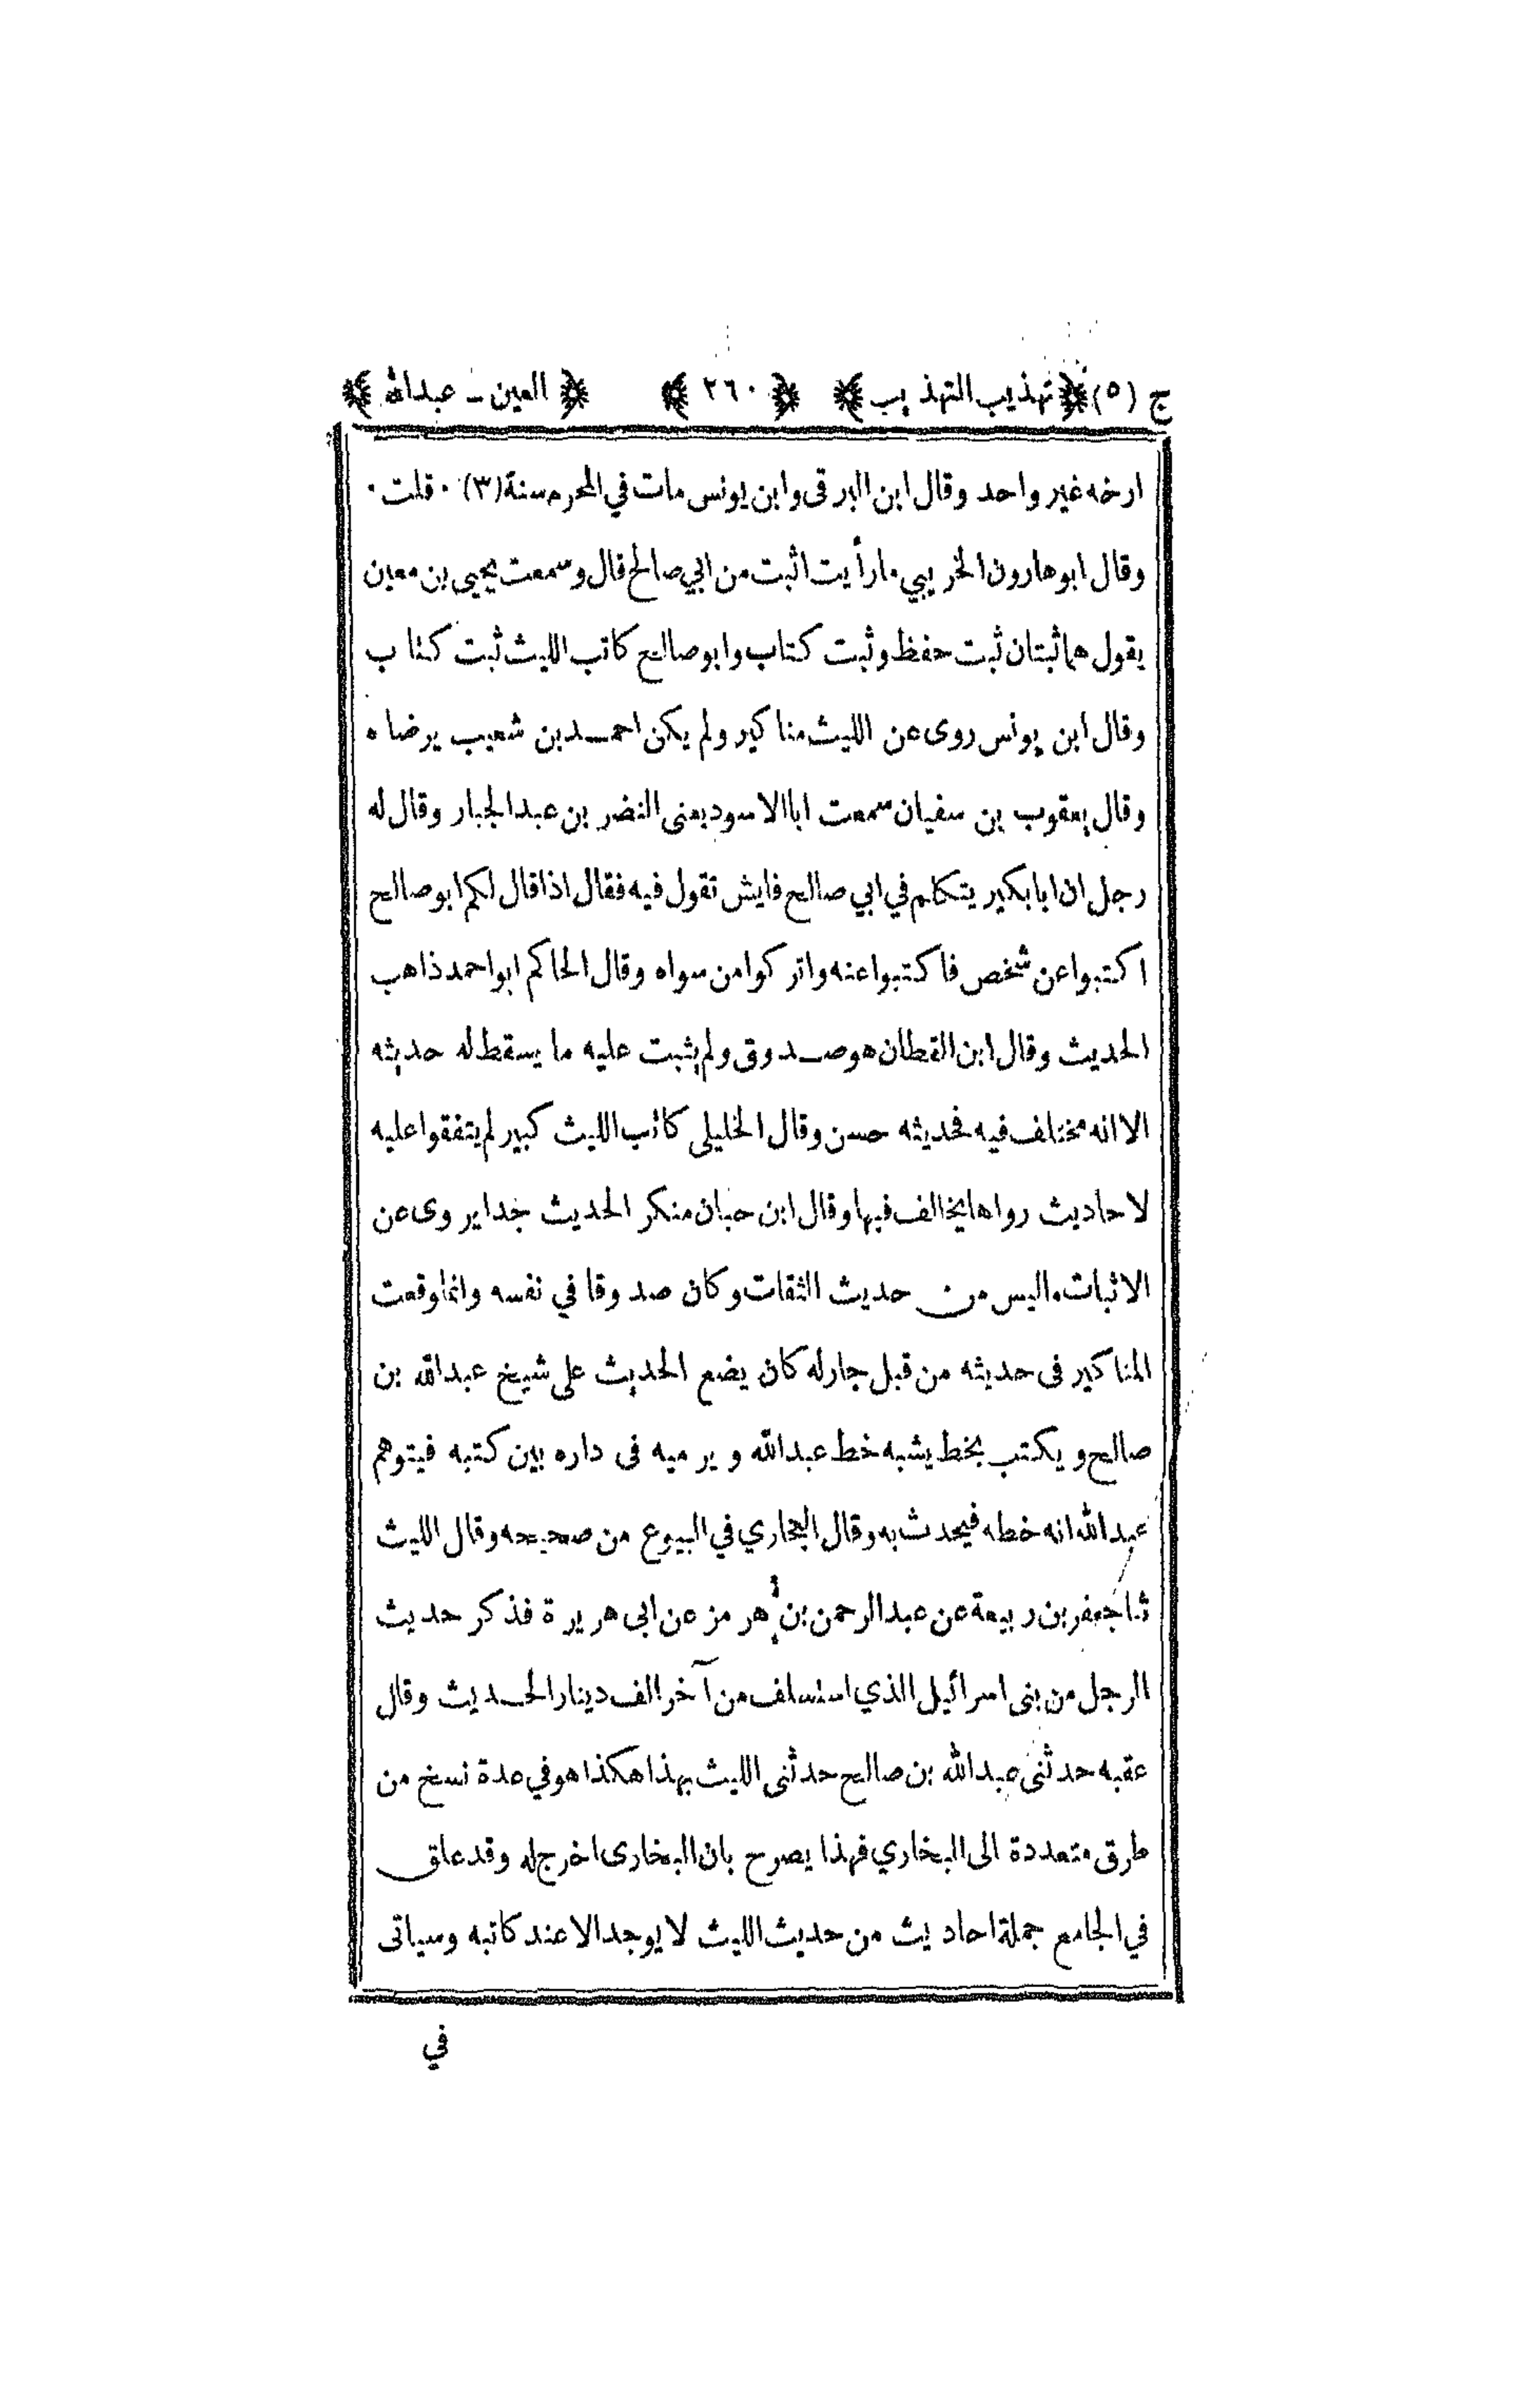 ج (٥) ﴿تهذيب التهذيب﴾ ﴿٢٦٠﴾ ﴿العين - عبدالله﴾
ارخه غير واحد وقال ابن البرقى وابن يونس مات في المحرم سنة (٣) ٠ قلت ٠
وقال ابو هارون الخريبي ما رأيت اثبت من ابي صالح قال وسمعت يحيى بن معين
يقول هما ثبتان ثبت حفظ وثبت كتاب وابو صالح كاتب الليث ثبت كتاب
وقال ابن يونس روى عن الليث مناكير ولم يكن احمد بن شعيب يرضاه
وقال يعقوب بن سفيان سمعت ابا الاسود يعنى النضر بن عبد الجبار وقال له
رجل ان ابا بكير يتكلم في ابي صالح فايش تقول فيه فقال اذا قال لكم ابو صالح
اكتبوا عن شخص فاكتبوا عنه واتركوا من سواه وقال الحاكم ابو احمد ذاهب
الحديث وقال ابن القطان هو صدوق ولم يثبت عليه ما يسقط له حديثه
الا انه مختلف فيه فحديثه حسن وقال الخليلى كاتب الليث كبير لم يتفقوا عليه
لاحاديث رواها يخالف فيها وقال ابن حبان منكر الحديث جدا يروى عن
الاثبات ما ليس من حديث الثقات وكان صدوقا في نفسه وانما وقعت
المناكير فى حديثه من قبل جار له كان يضع الحديث على شيخ عبدالله بن
صالح ويكتب بخط يشبه خط عبدالله ويرميه فى داره بين كتبه فيتوهم
عبدالله انه خطه فيحدث به وقال البخاري في البيوع من صحيحه وقال الليث
ثنا جعفر بن ربيعة عن عبد الرحمن بن هرمز عن ابى هريرة فذكر حديث
الرجل من بنى اسرائيل الذي استسلف من آخر الف دينار الحديث وقال
عقبه حدثنى عبدالله بن صالح حدثنى الليث بهذا هكذا هو في عدة نسخ من
طرق متعددة الى البخاري فهذا يصرح بان البخارى اخرج له وقد علق
في الجامع جملة احاديث من حديث الليث لا يوجد الا عند كاتبه وسياتى
في